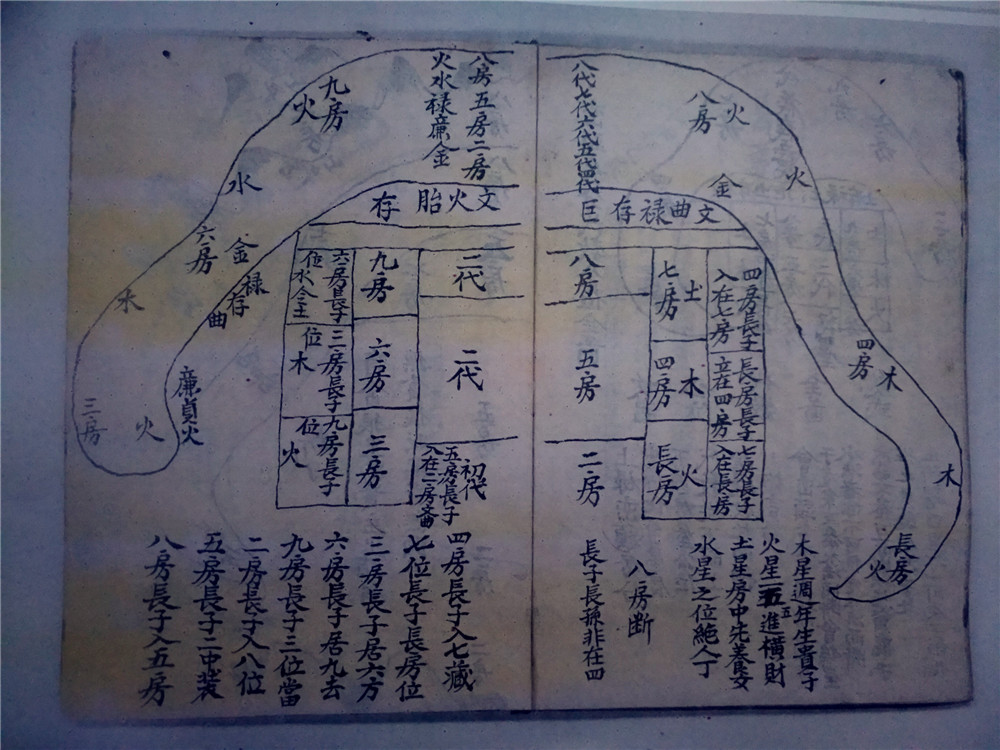 火
八房
八代七代六代五代四代
金
火
文曲禄存巨
四房
木
木
長房
火
四房長子
入在七房
長房長子
立在四房
七房長子
入在長房
七房
土
四房
木
長房
火
八房
五房
二房
木星週年生貴子
火星五進橫財
五
土星房中先養女
水星之位絶人丁
八房断
長子長孫非在四
八房五房二房
火水禄廉金
九房
火
水
文火胎存
六房
金
禄存
曲
木
廉貞火
三房
火
二代
二代
初代
五房長子
入在二房
九房
六房
三房
六房長子
位水金土
三房長子
位木
九房長子
位火
四房長子入七藏
七位長子長房位
三房長子居六方
六房長子居九去
九房長子三位當
二房長子入八位
五房長子二中装
八房長子入五房